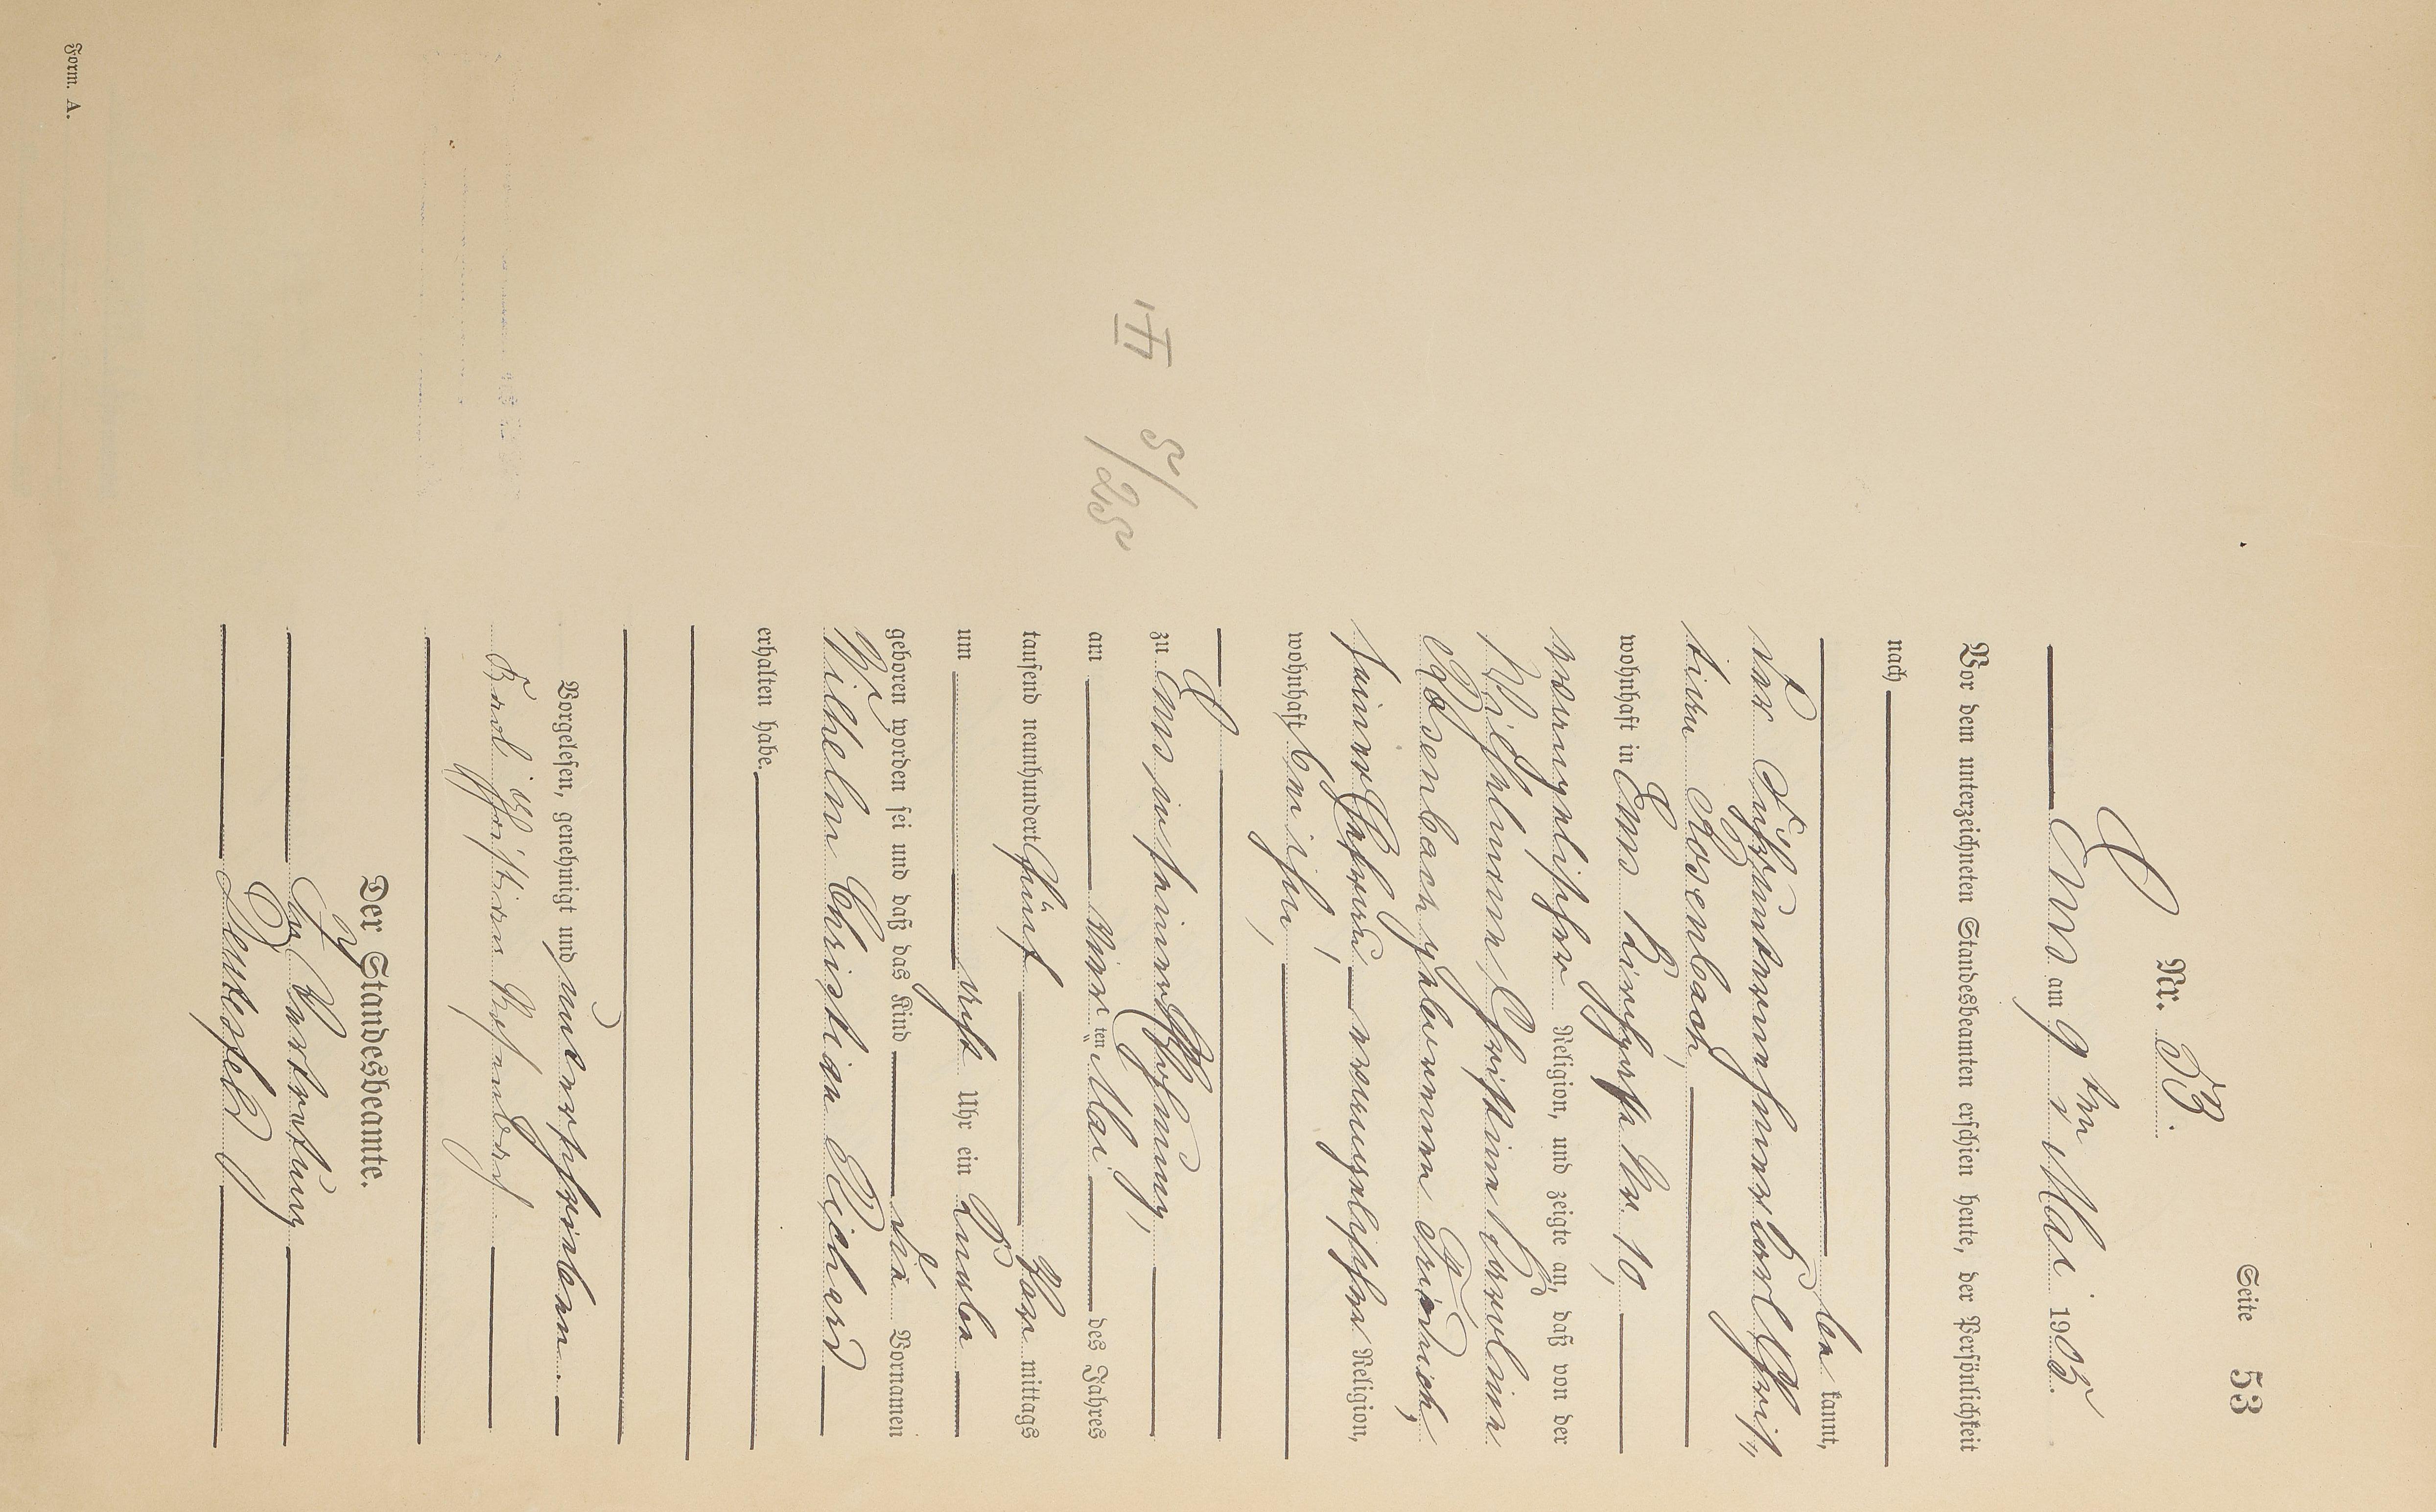 Seite 53
Nr. 53.
Ems am 9ten Mai 1905.
Vor dem unterzeichneten Standesbeamten erschien heute, der Persönlichkeit
nach
be kannt,
der Fuhrunternehmer Karl Chris„
tian Rosenbach,
wohnhaft in Ems Kirchgasse Nr. 10,
evangelischer Religion, und zeigte an, daß von der
Christine Karoline
Rosenbach geborenen
seiner Ehefrau, evangelischer Religion,
wohnhaft bei ihm,
zu Ems, in seiner Wohnung,
am vierten Mai des Jahres
tausend neunhundert fünf Vor mittags
um acht Uhr ein Knabe
geboren worden sei und daß das Kind die Vornamen
Wilhelm Christian Richard
erhalten habe.
Vorgelesen, genehmigt und unterschrieben.
Karl Christian Rosenbach
Der Standesbeamte.
In Vertretung
III 5/25
Form. A.